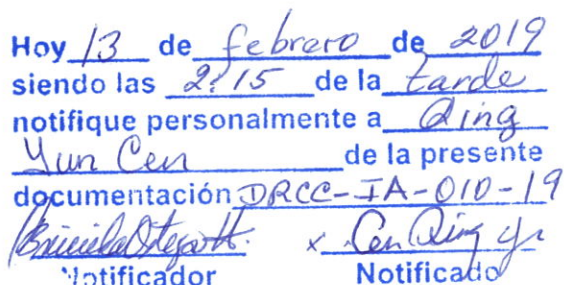 Hoy 13 de febrero de 2019
siendo las 2:15 de la tarde
notifique personalmente a Qing
Yun Cen de la presente
documentación DRCC-IA-010-19
x Cen Qing
Notificador Notificado